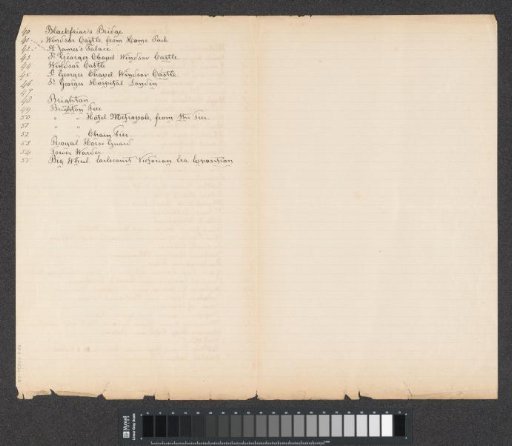 40 Blackfriar's Bridge
41 Windsor Castle from Home Park
42 St James's Palace
43 St Georges Chapel Windsor Castle
44 Windsor Castle
45 St Georges Chapel Windsor Castle
46 St Georges Hospital London
47
48 Brighton
49 Brighton Pier
50 " " Hotel Metropole, from the Pier
51
52 " " Chain Pier
53 Royal Horse Guard
54 Tower Warder
55 Big Wheel Earlscourt Victorian Era Exposition